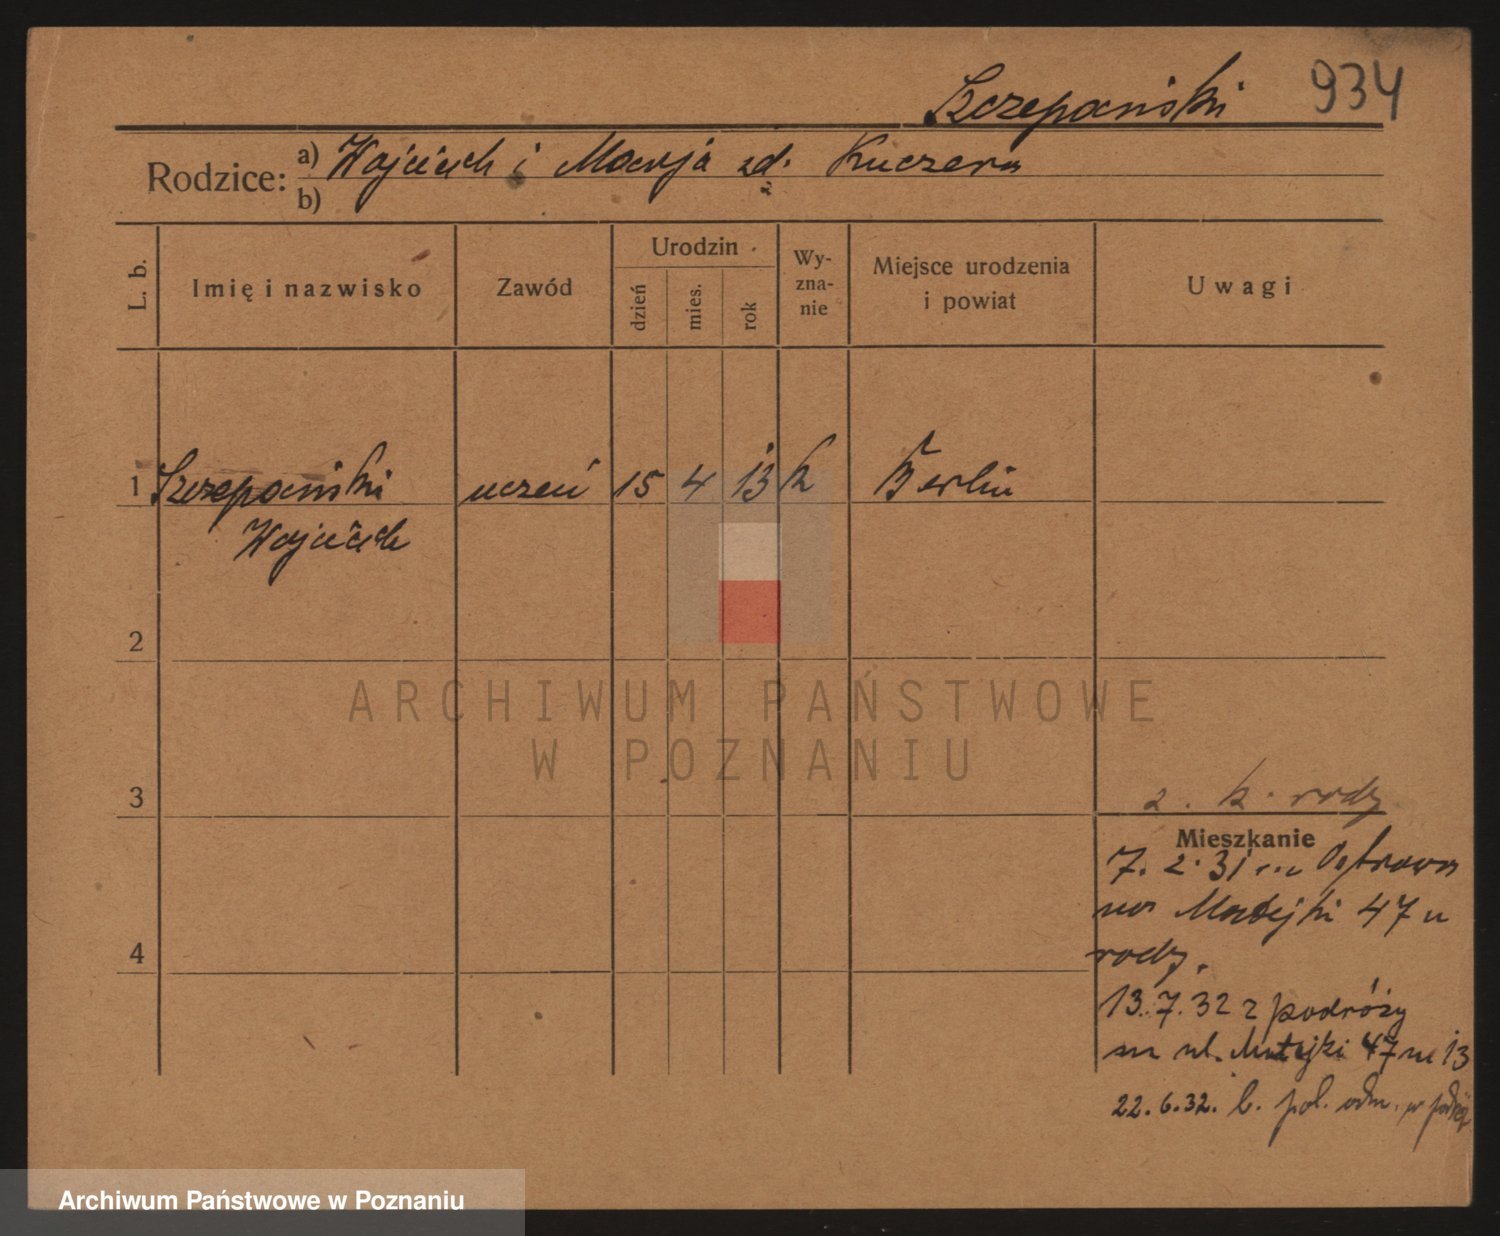 Szczepański 934
Rodzice: a) Wojciech i Marja zd. Kuczera
b)
L. b. Imię i nazwisko Zawód Urodzin dzień mies. rok Wyznanie Miejsce urodzenia i powiat Uwagi
1 Szczepański uczeń 15 4 13 k Berlin
Wojciech
2
ARCHIWUM PAŃSTWOWE
W POZNANIU
3
z. k. rodz
Mieszkanie
7. 2. 31 Ostrowa
na Matejki 47 u
4
rodz.
13.7.32 z podróży
na ul. Matejki 47 m 13
22.6.32. b. pol. odm. w podróż
Archiwum Państwowe w Poznaniu